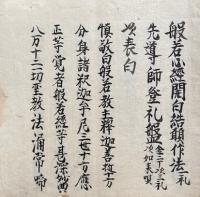 般若心經開白結願作法 一礼
先導師登礼盤 金二丁次三礼 次如来唄
次表白
慎敬白般若教主釋迦善逝
分身諸釋迦牟尼三世十方應
正等覺者般若經等甚深妙典
八万十二一切聖教法涌常啼